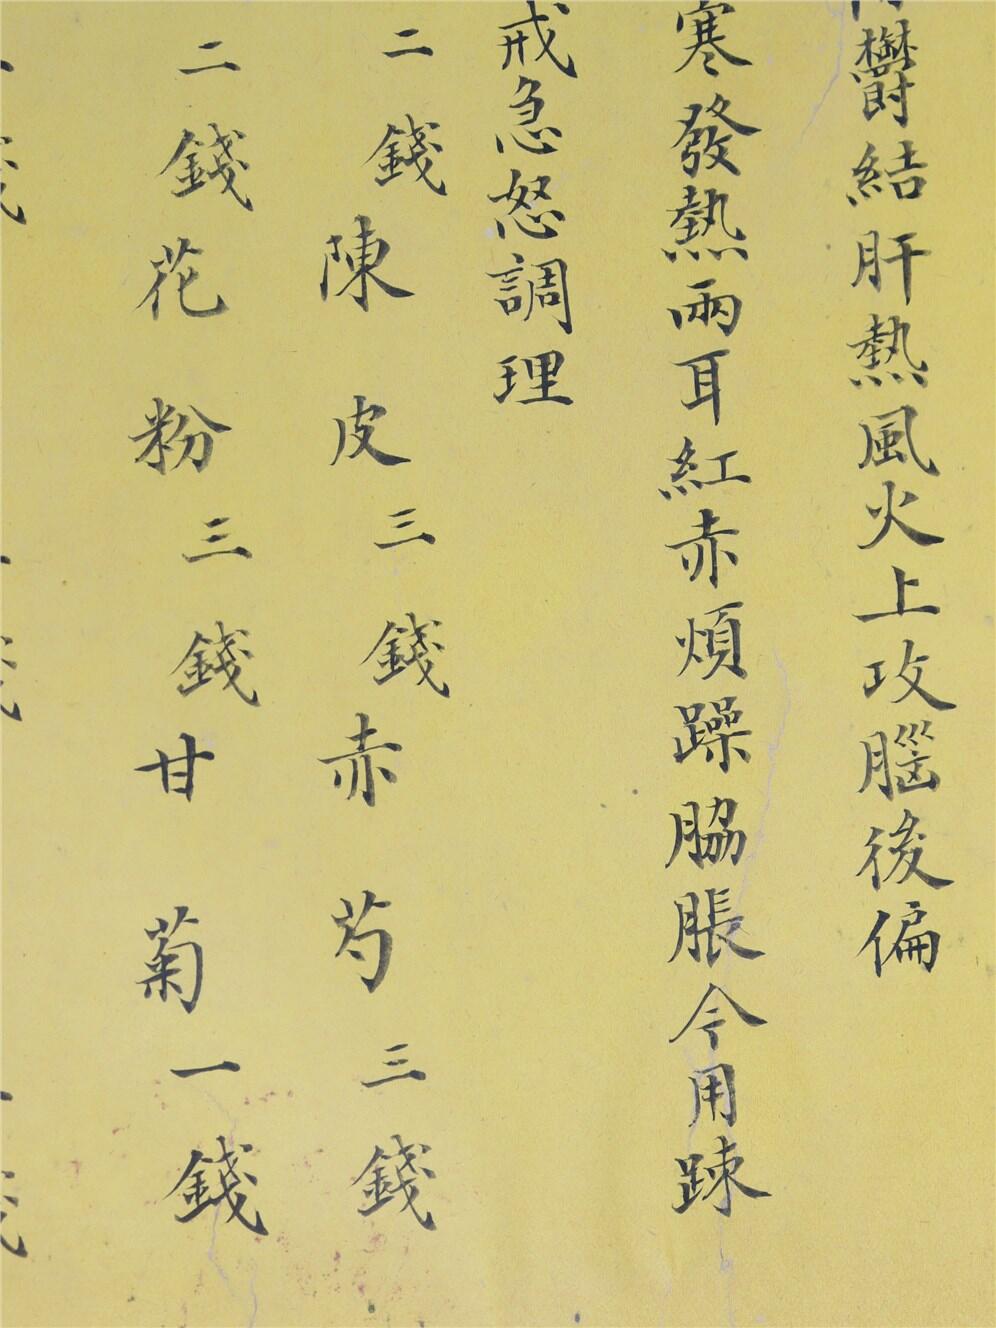 鬱結肝熱風火上攻腦後偏
寒發熱兩耳紅赤煩躁脇脹今用踈
戒急怒調理
二錢陳皮三錢赤芍三錢
二錢花粉三錢甘菊一錢